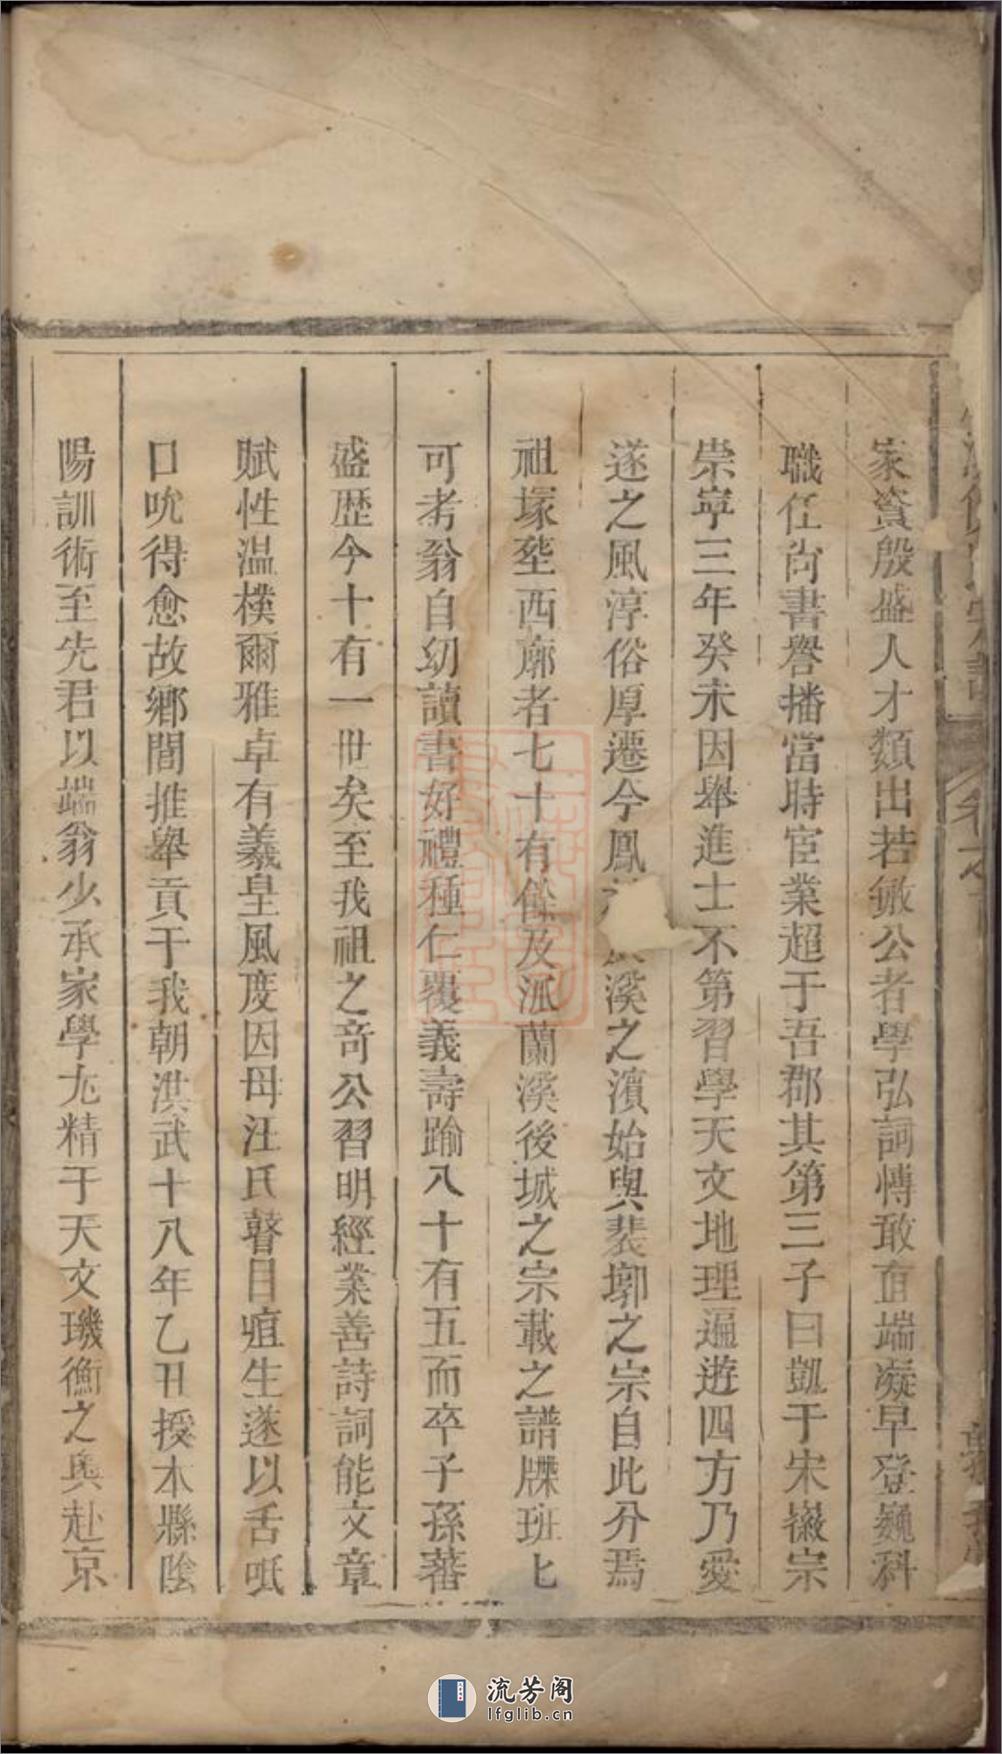 家資殷盛人才類出若敏公者學弘詞愽敢直端凝早登巍科
職任尚書譽播當時宦業超于吾郡其第三子曰凱于宋徽宗
崇寧三年癸未因舉進士不第習學天文地理遍遊四方乃愛
遂之風淳俗厚遷今鳳溪之濵始與裴墎之宗自此分焉
祖塚塟西廓者七十有餘及派蘭溪後城之宗載之譜牒班匕
可考翁自幼讀書好禮種仁覆義壽踰八十有五而卒子孫蕃
盛歴今十有一世矣至我祖之竒公習明經業善詩詞能文章
賦性温樸爾雅卓有羲皇風度因母汪氏瞽目疽生遂以舌咶
口吮得愈故鄉閭推舉貢于我朝洪武十八年乙丑授本縣陰
陽訓術至先君以端翁少承家學尢精于天文璣衡之奥赴京
流芳阁
lfglib.com